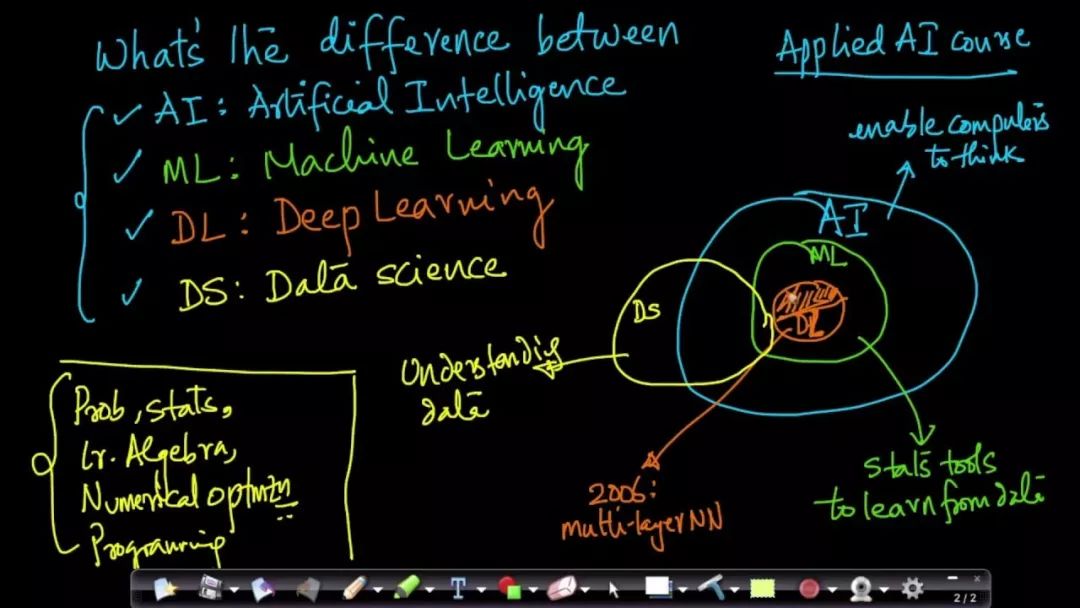 What's the difference between
AI: Artificial Intelligence
ML: Machine Learning
DL: Deep Learning
DS: Data science
Applied AI course
enable computers
to think
AI
ML
DL
DS
Understanding
data
2006:
multi-layer NN
stats tools
to learn from data
Prob, stats,
Lr. Algebra,
Numerical optmzn
Programming
T
2/2